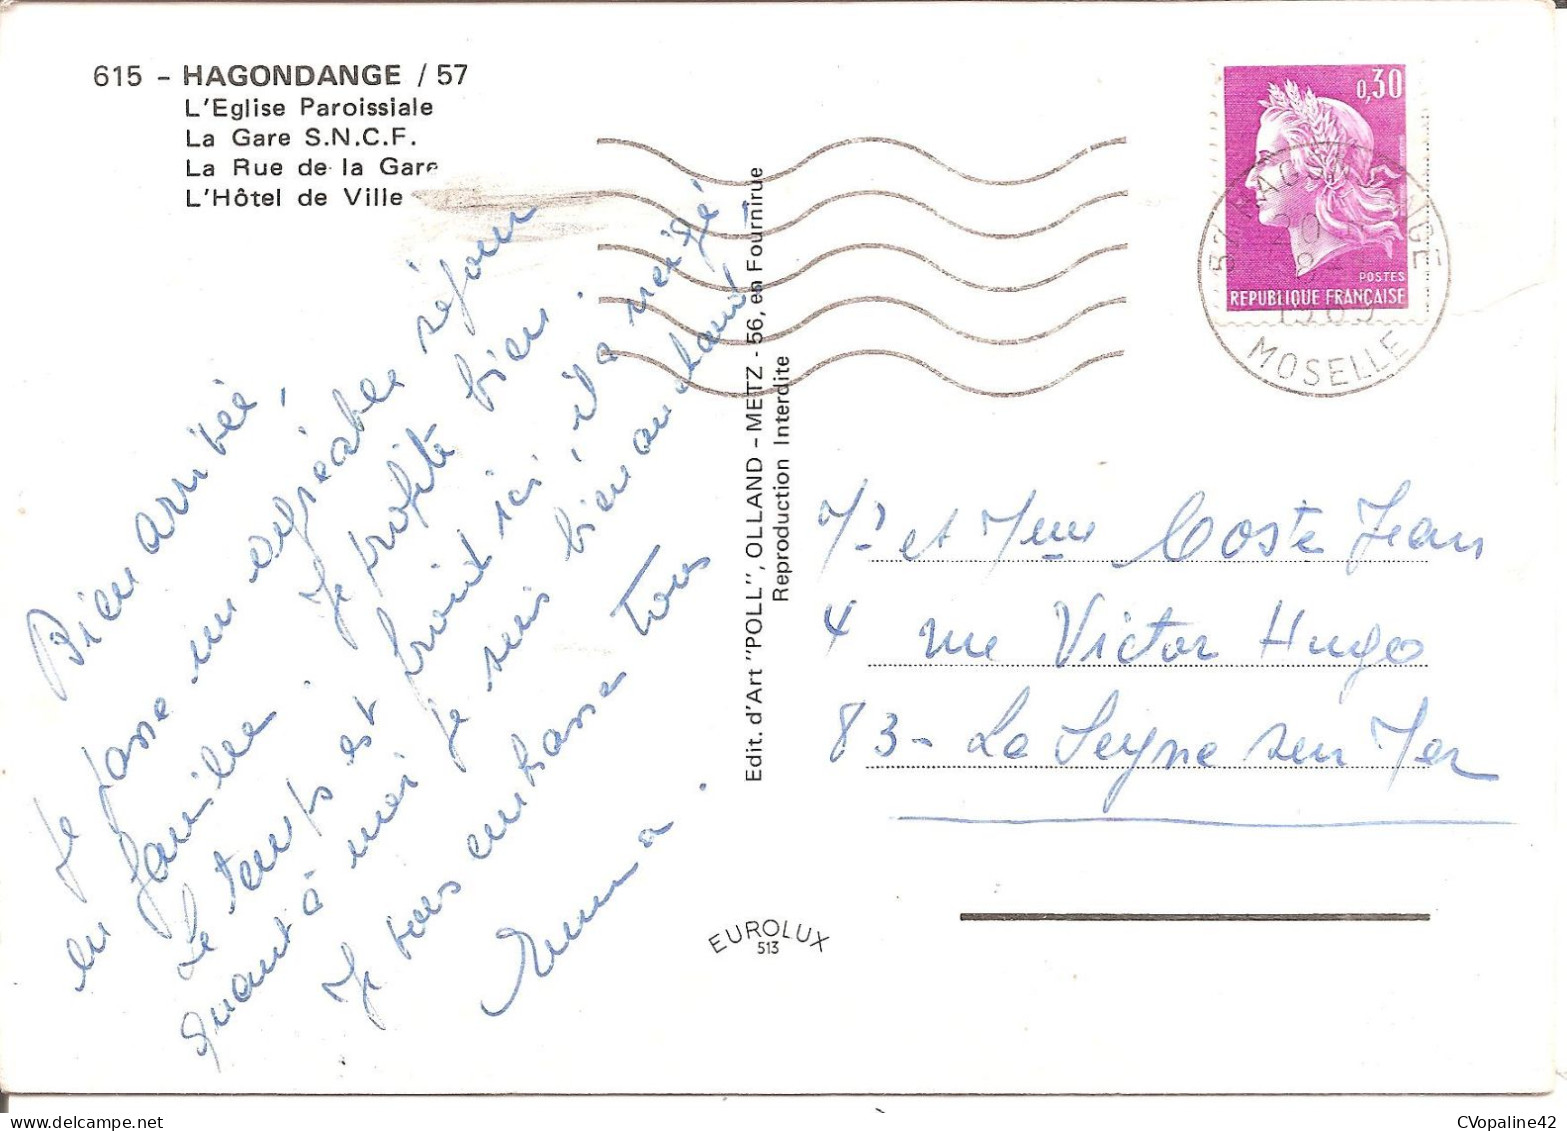 615 - HAGONDANGE / 57
L'Eglise Paroissiale
La Gare S.N.C.F.
La Rue de la Gare
L'Hôtel de Ville
Bien arrivée,
Je passe un agréable séjour
en famille. Je profite bien.
Le temps est froid ici, il a neigé -
quant à moi je suis bien au chaud -
Je vous embrasse tous
Emma.
Edit. d'Art "POLL", OLLAND - METZ - 56, en Fournirue
Reproduction Interdite
EUROLUX
513
0,30
POSTES
REPUBLIQUE FRANÇAISE
57 HAGONDANGE
20
1969
MOSELLE
Mr et Mme Coste Jean
4 rue Victor Hugo
83 - La Seyne sur Mer
CVopaline42